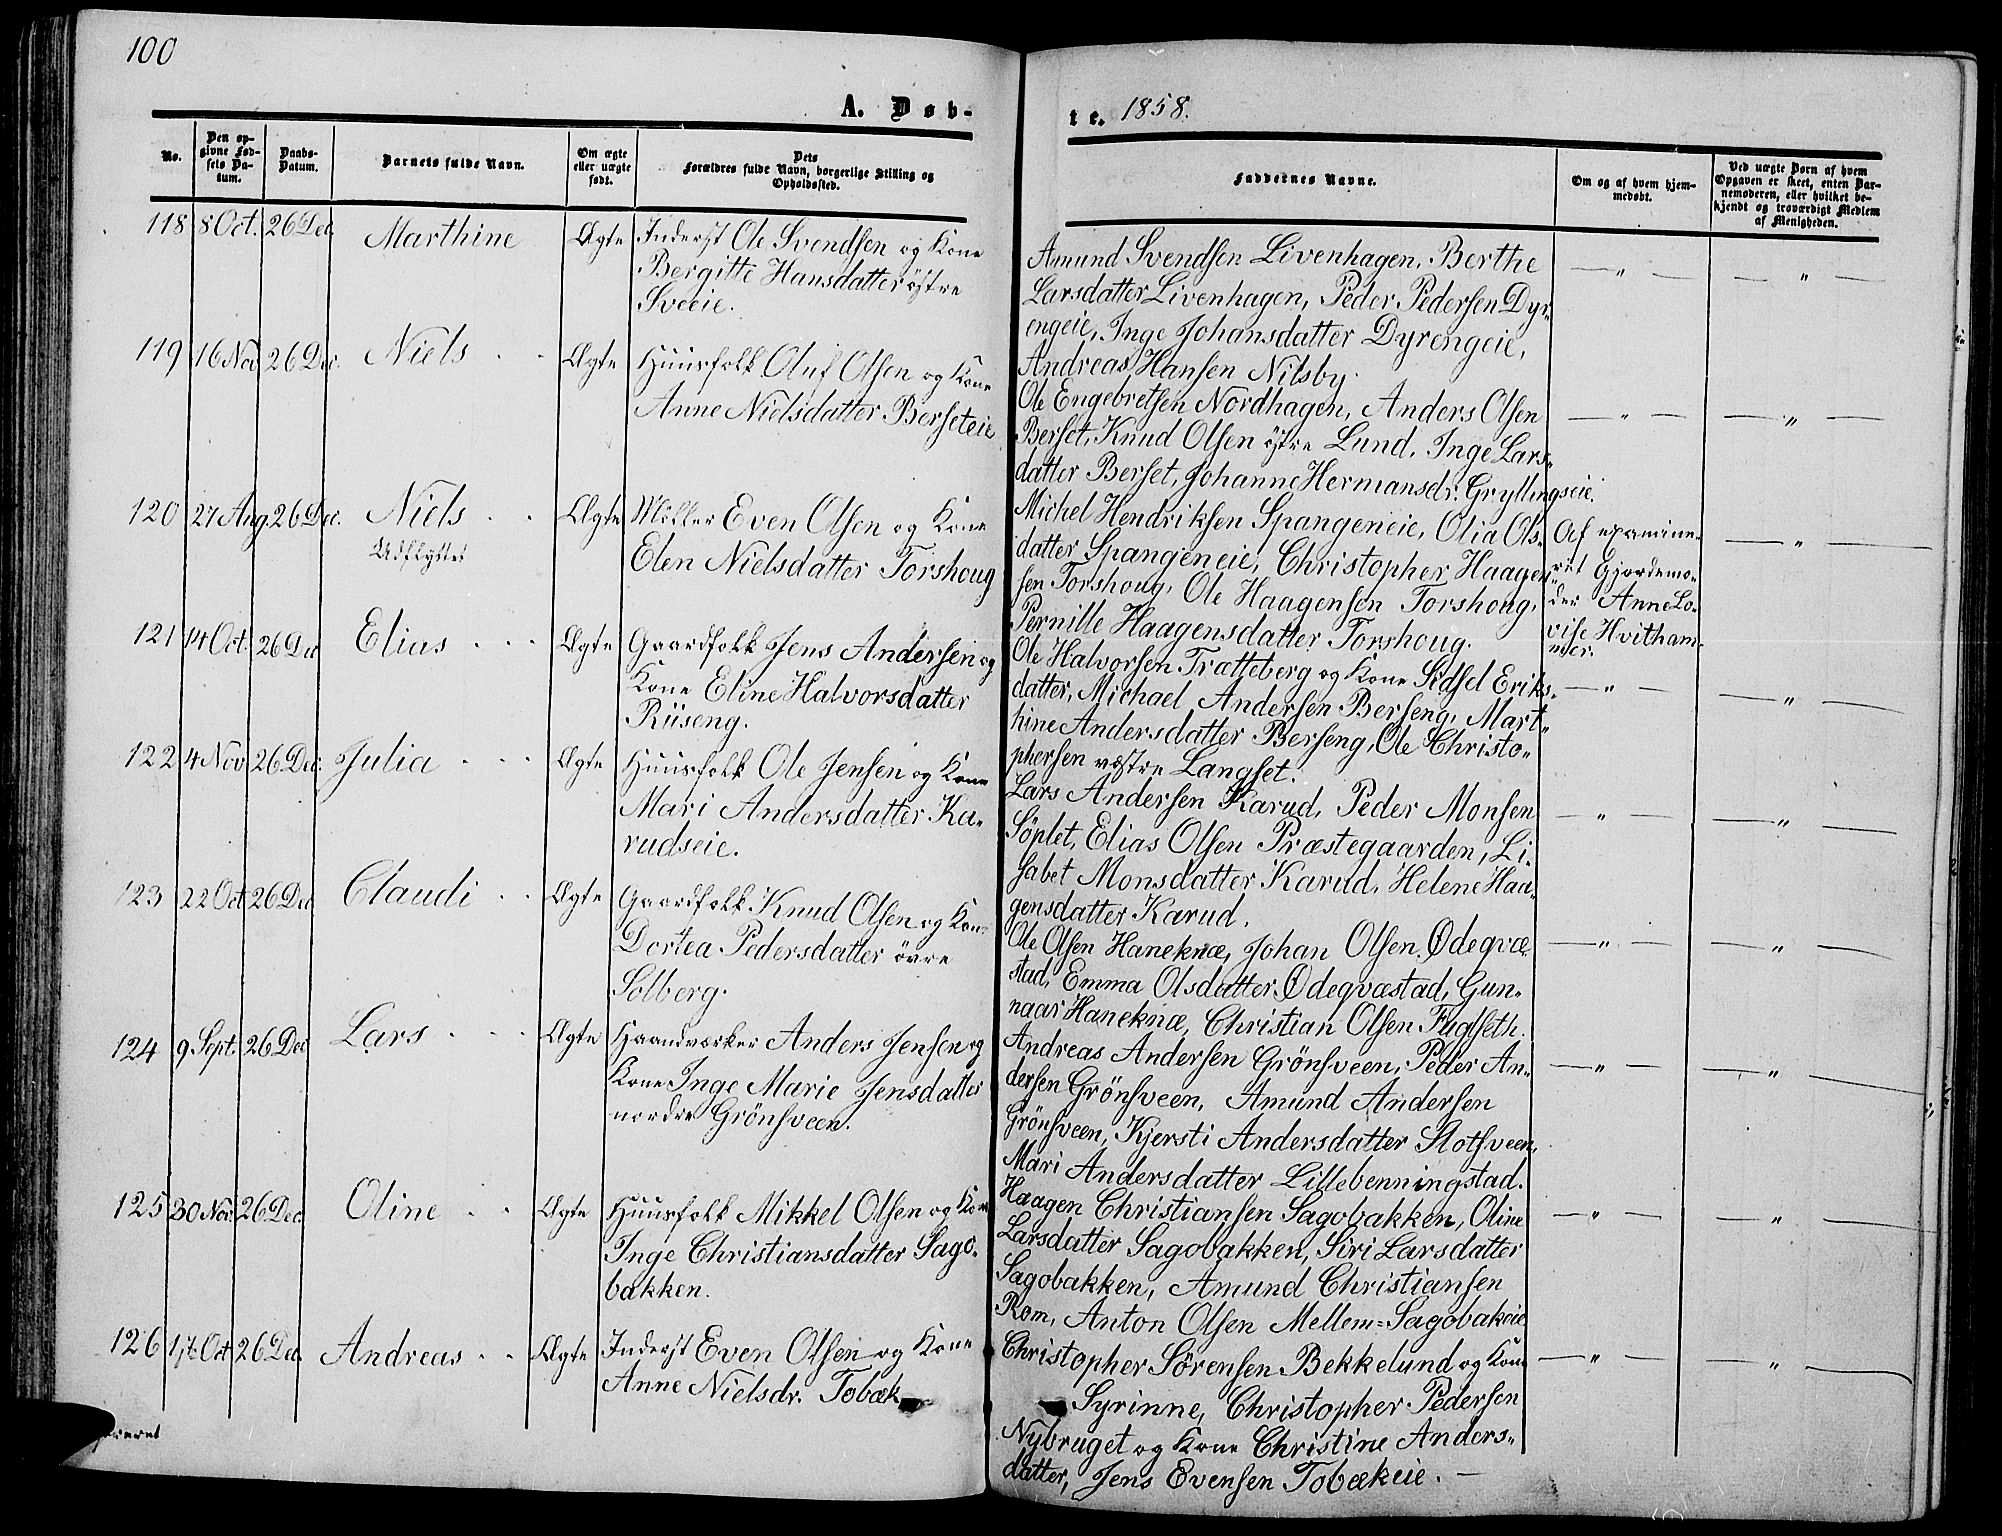 100
A. Døb-
te. 1858.
No.
Den op-
givne Fød-
sels Da-
tum.
Daabs-
Datum.
Barnets fulde Navn.
Om ægte
eller uægte
født.
Dets
Forældres fulde Navn, borgerlige Stilling og
Opholdssted.
Faddernes Navne.
Om og af hvem hjem-
medøbt.
Ved uægte Børn af hvem
Opgaven er skeet, enten Bar-
nemoderen, eller hvilket be-
kjendt og troværdigt Medlem
af Menigheden.
118 8 Oct. 26 Dec. Marthine Ægte Inderst Ole Svendsen og Kone
Bergitte Hansdatter østre
Sveeie.
Amund Svendsen Livenhagen, Berthe
Larsdatter Livenhagen, Peder Pedersen Dyr-
engeie, Inge Johansdatter Dyrengeie,
Andreas Hansen Nilsby.
— " — — " —
119 16 Nov 26 Dec. Niels Ægte Huusfolk Oluf Olsen og Kone
Anne Nielsdatter Berseteie
Ole Engebretsen Nordhagen, Anders Olsen
Berset, Knud Olsen østre Lund, Inge Lars-
datter Berset, Johanne Hermansdr. Gryllingseie.
— " — — " —
120 27 Aug. 26 Dec. Niels Ægte Møller Even Olsen og Kone
Udflyttet
Elen Nielsdatter Torshoug
Michel Hendriksen Spangeneie, Olia Ols-
datter Spangeneie, Christopher Haagen-
sen Torshoug, Ole Haagensen Torshoug,
Pernille Haagensdatter Torshoug.
Af examine-
ret Gjordemo-
der Anne Lo-
vise Hvitham-
mer.
— " —
121 14 Oct. 26 Dec Elias Ægte Gaardfolk Jens Andersen og
Kone Eline Halvorsdatter
Riiseng.
Ole Halvorsen Trætteberg og Kone Sidsel Eriks-
datter, Michael Andersen Berseng, Mart-
hine Andersdatter Berseng, Ole Christo-
phersen vestre Langset.
— " — — " —
122 4 Nov 26 Dec. Julia Ægte Huusfolk Ole Jensen og Kone
Mari Andersdatter Ka-
rudseie.
Lars Andersen Karud, Peder Monsen
Søplet, Elias Olsen Præstegaarden, Li-
sabet Monsdatter Karud, Helene Haa-
gensdatter Karud.
— " — — " —
123 22 Oct 26 Dec. Claudi Ægte Gaardfolk Knud Olsen og Kone
Dortea Pedersdatter övre
Solberg.
Ole Olsen Haneknæ, Johan Olsen Ødeqvæ-
stad, Emma Olsdatter Ødeqvæstad, Gun-
naar Haneknæ, Christian Olsen Fuglseth.
— " — — " —
124 9 Sept. 26 Dec Lars Ægte Haandværker Anders Jensen og
Kone Inge Marie Jensdatter
nordre Grönsveen.
Andreas Andersen Grönsveen, Peder An-
dersen Grönsveen, Amund Andersen
Grönsveen, Kjersti Andersdatter Slotsveen,
Mari Andersdatter Lillebenningstad.
— " — — " —
125 30 Nov. 26 Dec. Oline Ægte Huusfolk Mikkel Olsen og Kone
Inge Christiansdatter Sago-
bakken.
Haagen Christiansen Sagobakken, Oline
Larsdatter Sagobakken, Siri Larsdatter
Sagobakken, Amund Christiansen
Rom, Anton Olsen Mellem-Sagobakeie
— " — — " —
126 17 Oct 26 Dec. Andreas Ægte Inderst Even Olsen og Kone
Anne Nielsdr. Tobæk
Christopher Sørensen Bekkelund og Kone
Syrinne, Christopher Pedersen
Nybruget og Kone Christine Anders-
datter, Jens Evensen Tobækeie. —
— " — — " —